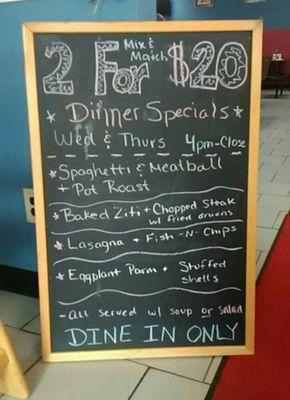 2 For Mix & Match $20
* Dinner Specials *
Wed & Thurs 4pm-Close
* Spaghetti & Meatball
+ Pot Roast
* Baked Ziti + Chopped Steak
w/ fried onions
* Lasagna + Fish-N-Chips
* Eggplant Parm + Stuffed
Shells
- All served w/ soup or salad
DINE IN ONLY